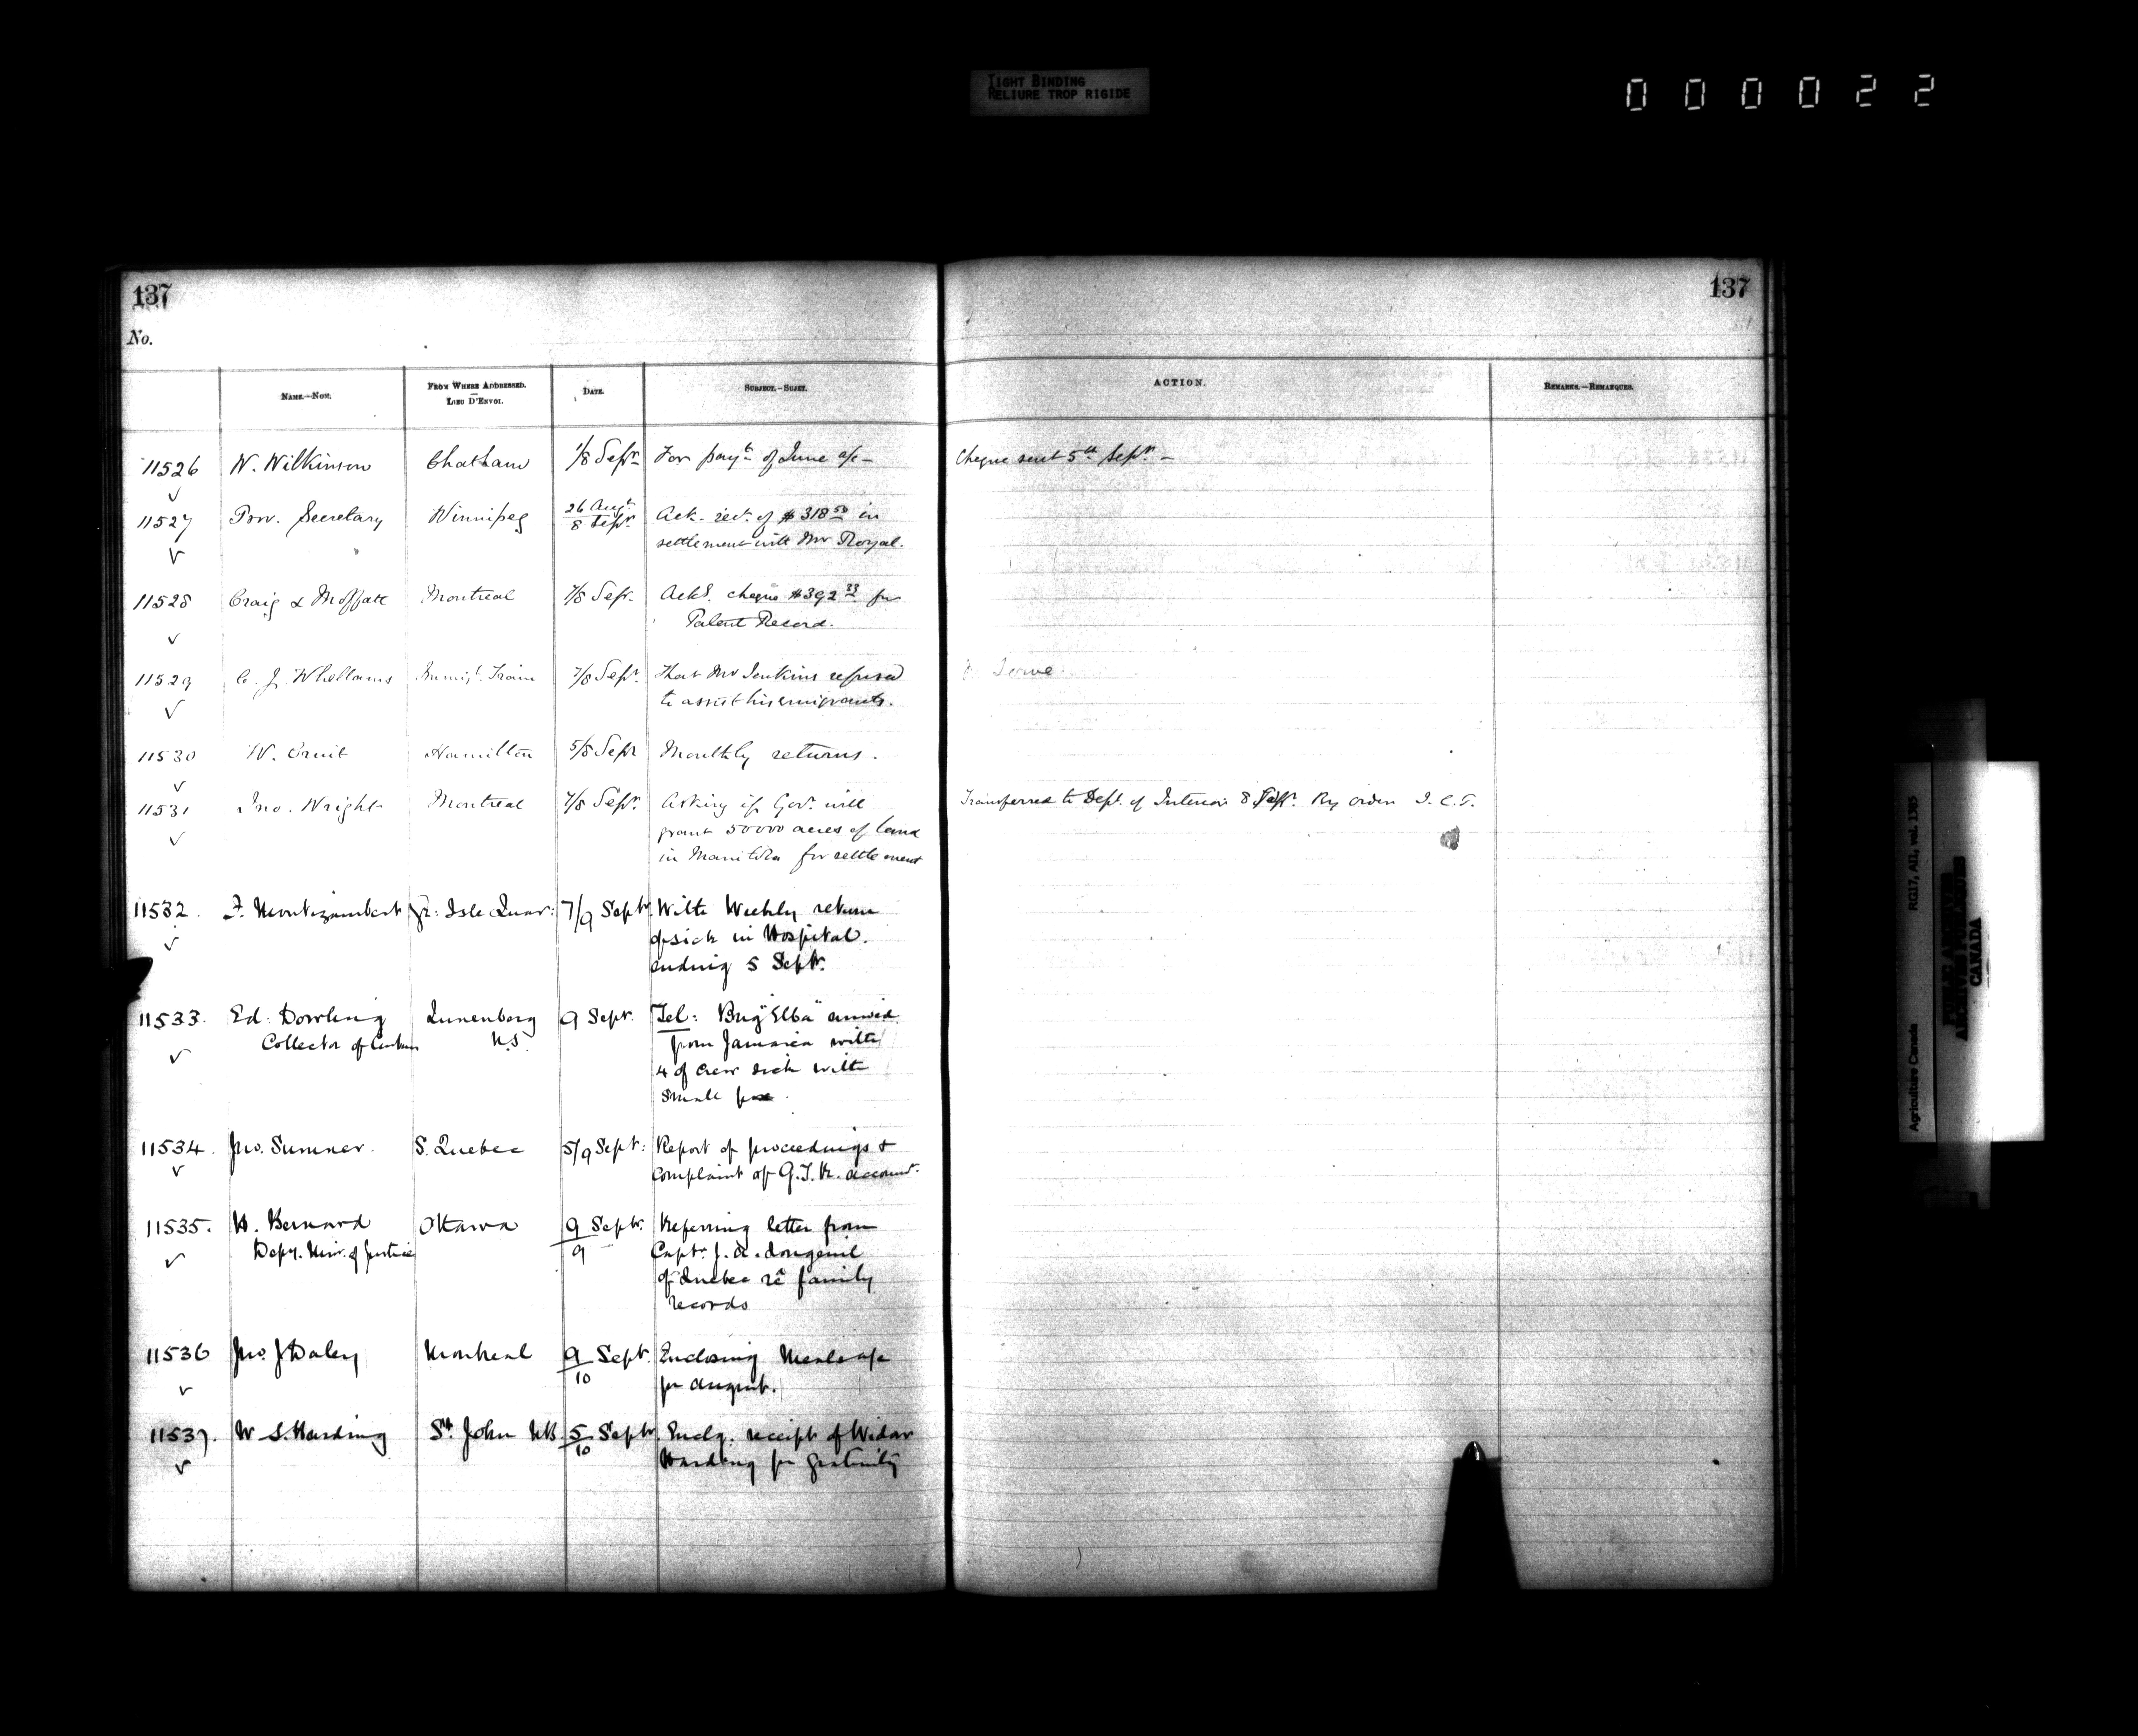 TIGHT BINDING
RELIURE TROP RIGIDE
000022
137
137
No.
NAME.—NOM.
FROM WHERE ADDRESSED.
—
LIEU D'ENVOI.
DATE.
SUBJECT.—SUJET.
ACTION.
REMARKS.—REMARQUES.
11526 W. Wilkinson Chatham 1/8 Sepr. For payt. of June a/c — Cheque sent 5th Sepr. —
11527 Prov. Secretary Winnipeg 26 Augt. Ack. rect. of $318.50 in
8 Sepr. settlement with Mr Royal.
11528 Craig & Moffatt Montreal 7/8 Sepr. Ackd. cheque $392.33 for
Patent Record.
11529 C. J. Whellams Immigt. Train 7/8 Sepr. That Mr Jenkins refused
to assist his emigrants.
11530 W. Hamilton 5/8 Sepr Monthly returns.
11531 Jno. Wright Montreal 7/8 Sepr. Asking if Govt. will Transferred to Dept. of Interior 8 Sepr. By order J.C.T.
grant 50000 acres of land
in Manitoba for settlement
11532. F. Montizambert Gr: Isle Quar: 7/9 Septr. With Weekly return
of sick in Hospital.
ending 5 Septr.
11533. Ed: Dowling Lunenberg 9 Sept. Tel: Brig "Elba" arrived
Collector of Customs N.S. from Jamaica with
4 of Crew sick with
Small pox.
11534. Jno. Sumner. S. Quebec 5/9 Sept: Report of proceedings &
complaint of G.T.R. account.
11535. H. Bernard Ottawa 9/9 Septr. Referring letter from
Depy. Min. of Justice Captn. J. A.
of Quebec re family
records
11536 Jno. J Daley Montreal 9/10 Sept. Enclosing Meals a/c
for August.
11537. W. S. Harding St. John NB. 5/10 Septr. Enclg. receipt of Widow
Harding for gratuity
Agriculture Canada
RG17, AII, vol. 1385
PUBLIC ARCHIVES
ARCHIVES PUBLIQUES
CANADA